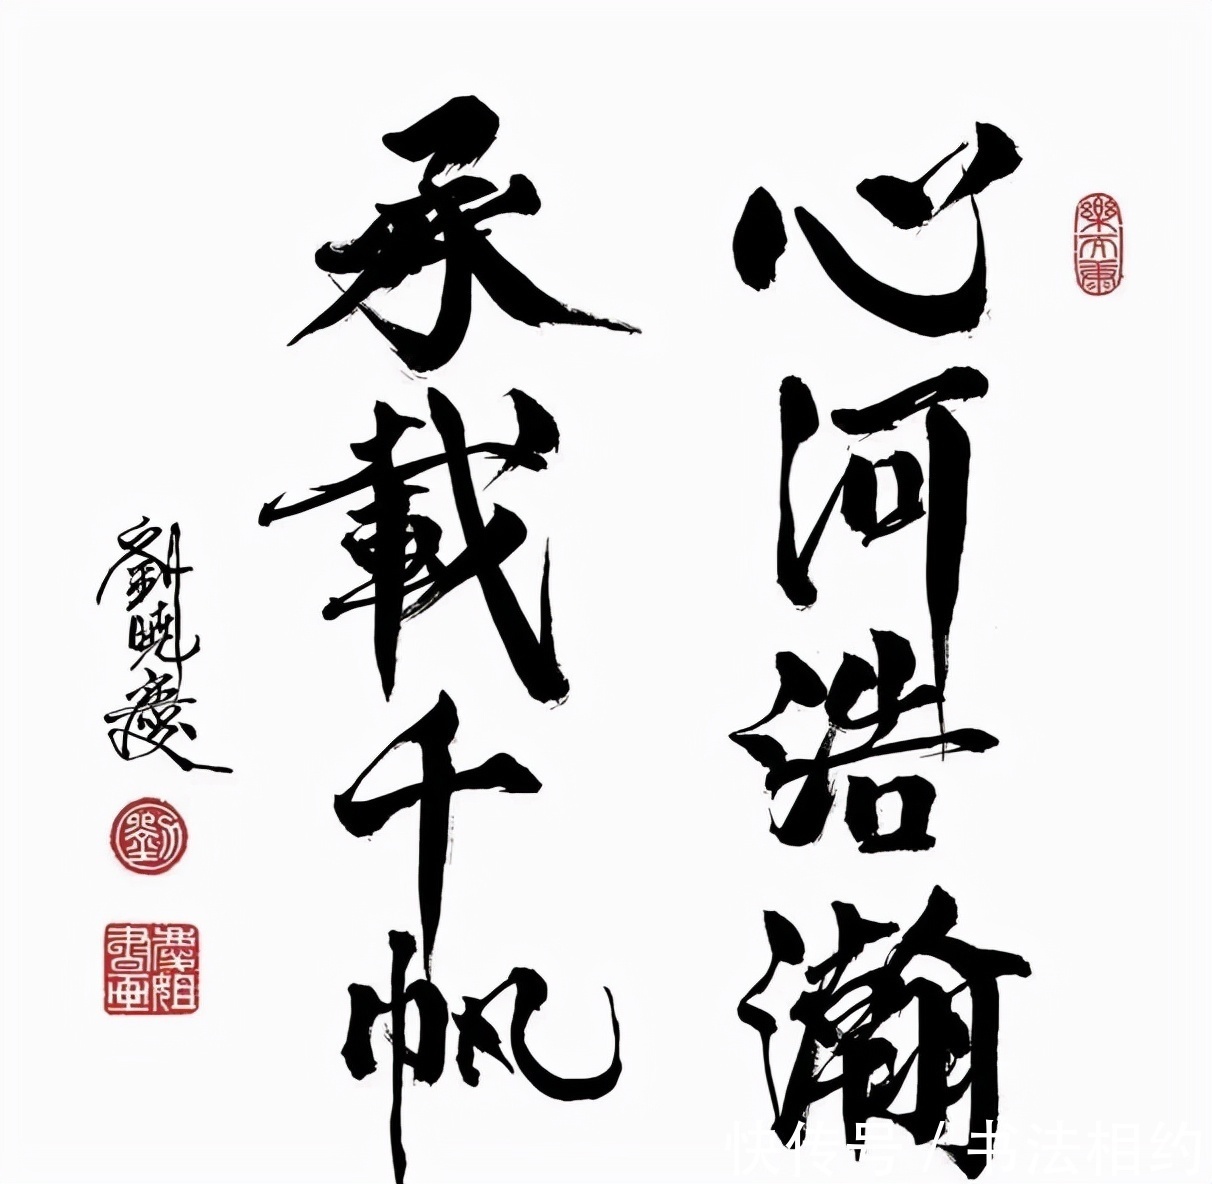 心河浩瀚
承載千帆
劉曉慶
劉
慶姐書画
快传号/书法相约